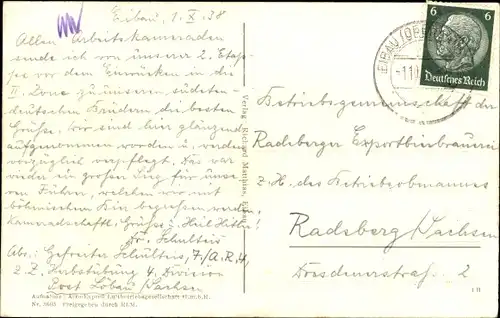 Eibau, 1.X.38
Allen Arbeitskameraden
sende ich von unserer 2. Etap-
pe vor dem Einrücken in die
II. Zone zu unseren sudeten-
deutschen Brüdern die besten
Grüße, wir sind hier glänzend
aufgenommen worden u. werden
vorzüglich verpflegt. Es war
wieder ein großer Tag für unse-
ren Führer, welchen wir mit
böhmischen Bier begießen werden.
Kameradschaftl. Grüße u. Heil Hitler!
Schulteis
Abs.: Gefreiter Schulteis, 7/A.R.4,
z.Z. Herbstübung 4. Division
Post Löbau/Sachsen
Aufnahme: Aero-Exprеß Luftbetriebsgesellschaft G.m.b.H.
Freigegeben durch RLM.
Verlag: Richard Matthias,
6 6
Deutsches Reich
EIBAU
Betriebsgemeinschaft der
Radeberger Exportbierbrauerei
z.H. des Betriebsobmannes
Radeberg/Sachsen
Dresdenerstraße 2